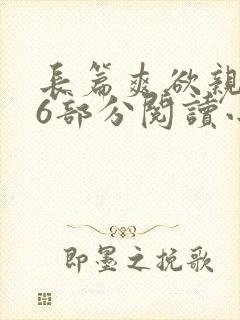 長篇爽欲親
6部分閱讀小
即墨之挽歌